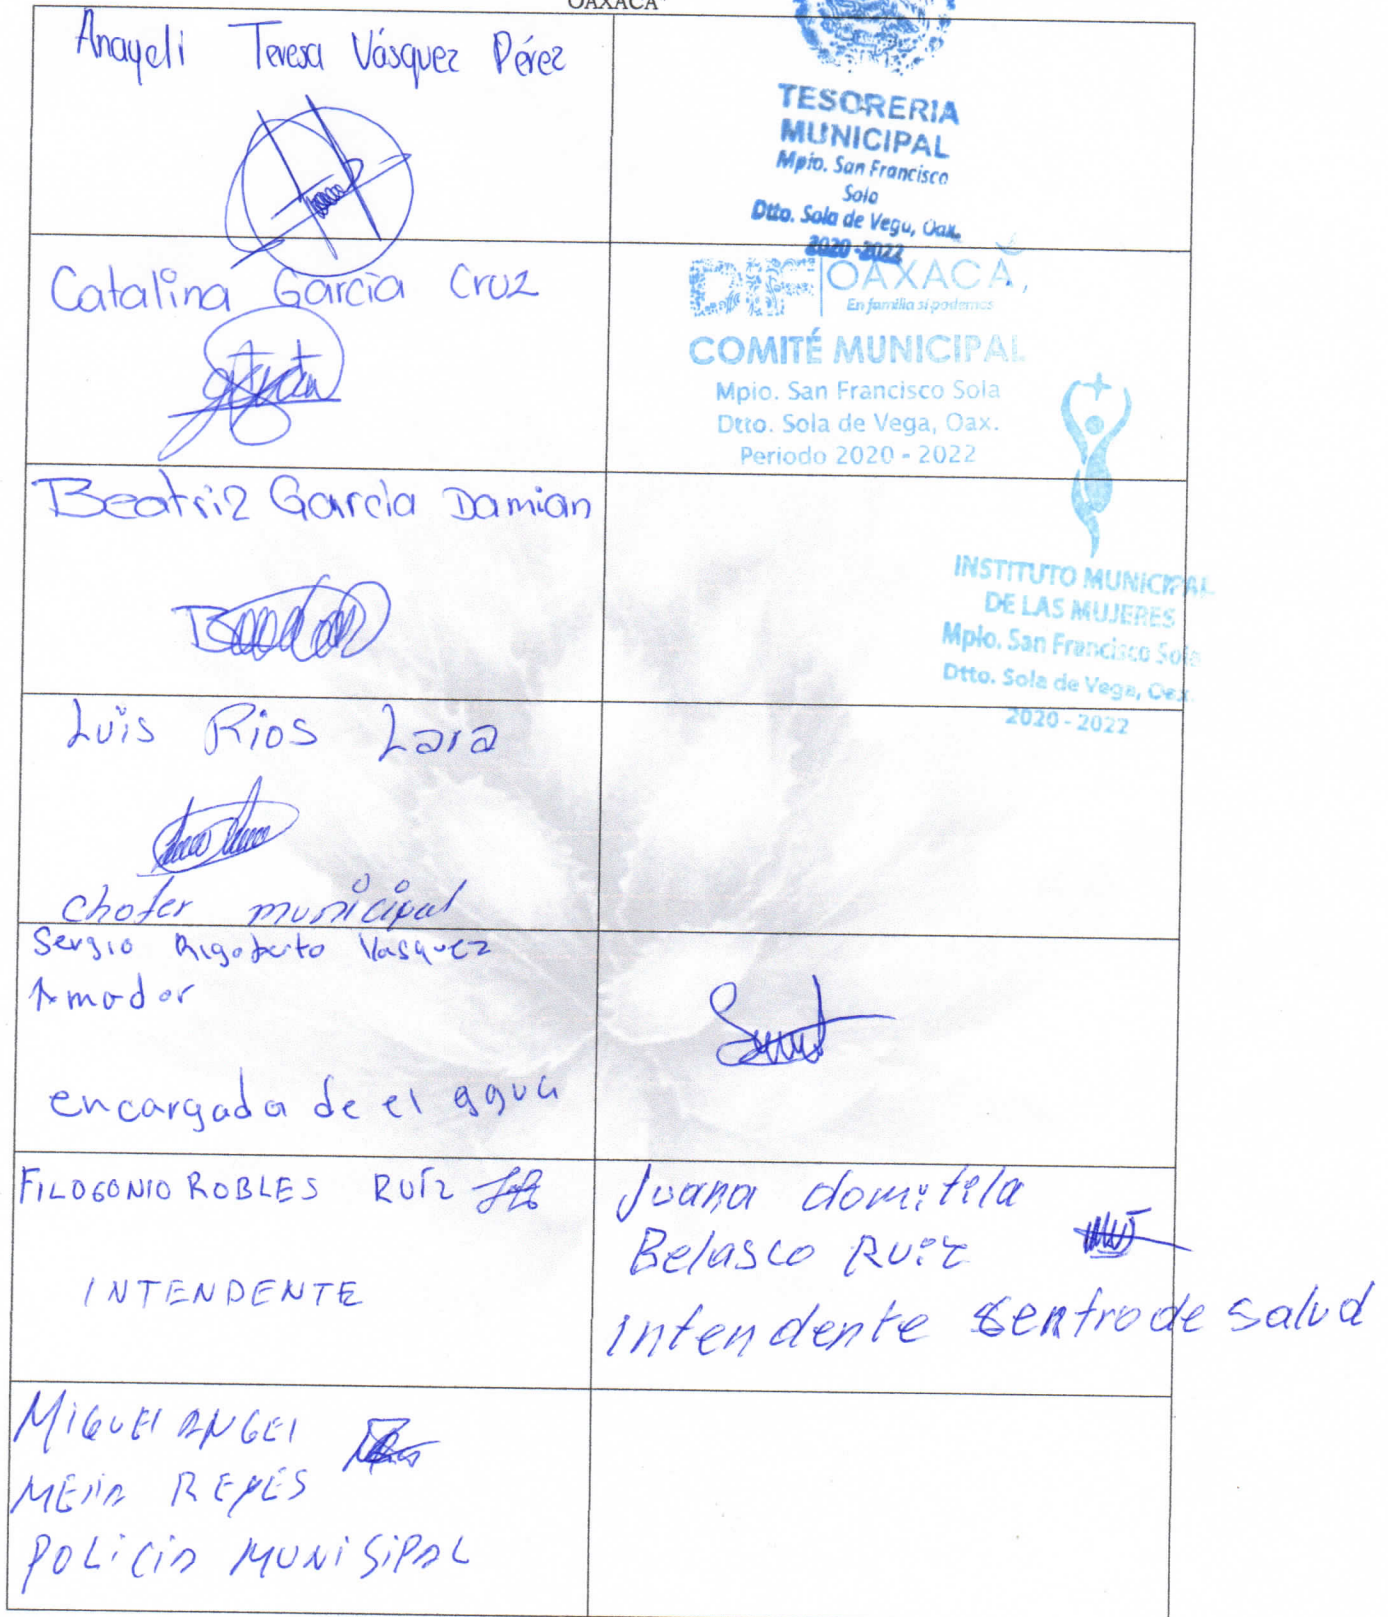 OAXACA
Anayeli Teresa Vásquez Pérez
TESORERIA
MUNICIPAL
Mpio. San Francisco
Sola
Dtto. Sola de Vega, Oax.
2020-2022
Catalina García Cruz
DIF OAXACA,
En familia sí podemos
COMITÉ MUNICIPAL
Mpio. San Francisco Sola
Dtto. Sola de Vega, Oax.
Periodo 2020 - 2022
Beatriz García Damian
INSTITUTO MUNICIPAL
DE LAS MUJERES
Mpio. San Francisco Sola
Dtto. Sola de Vega, Oax.
2020 - 2022
Luis Rios Lara
chofer municipal
Sergio Rigoberto Vasquez
Amador
encargada de el agua
FILOGONIO ROBLES RUÍZ
INTENDENTE
Juana domitila
Belasco Ruiz
intendente sentro de salud
MIGUEl ANGEl
MEJIA REYES
POLiCIA MUNiSiPAL